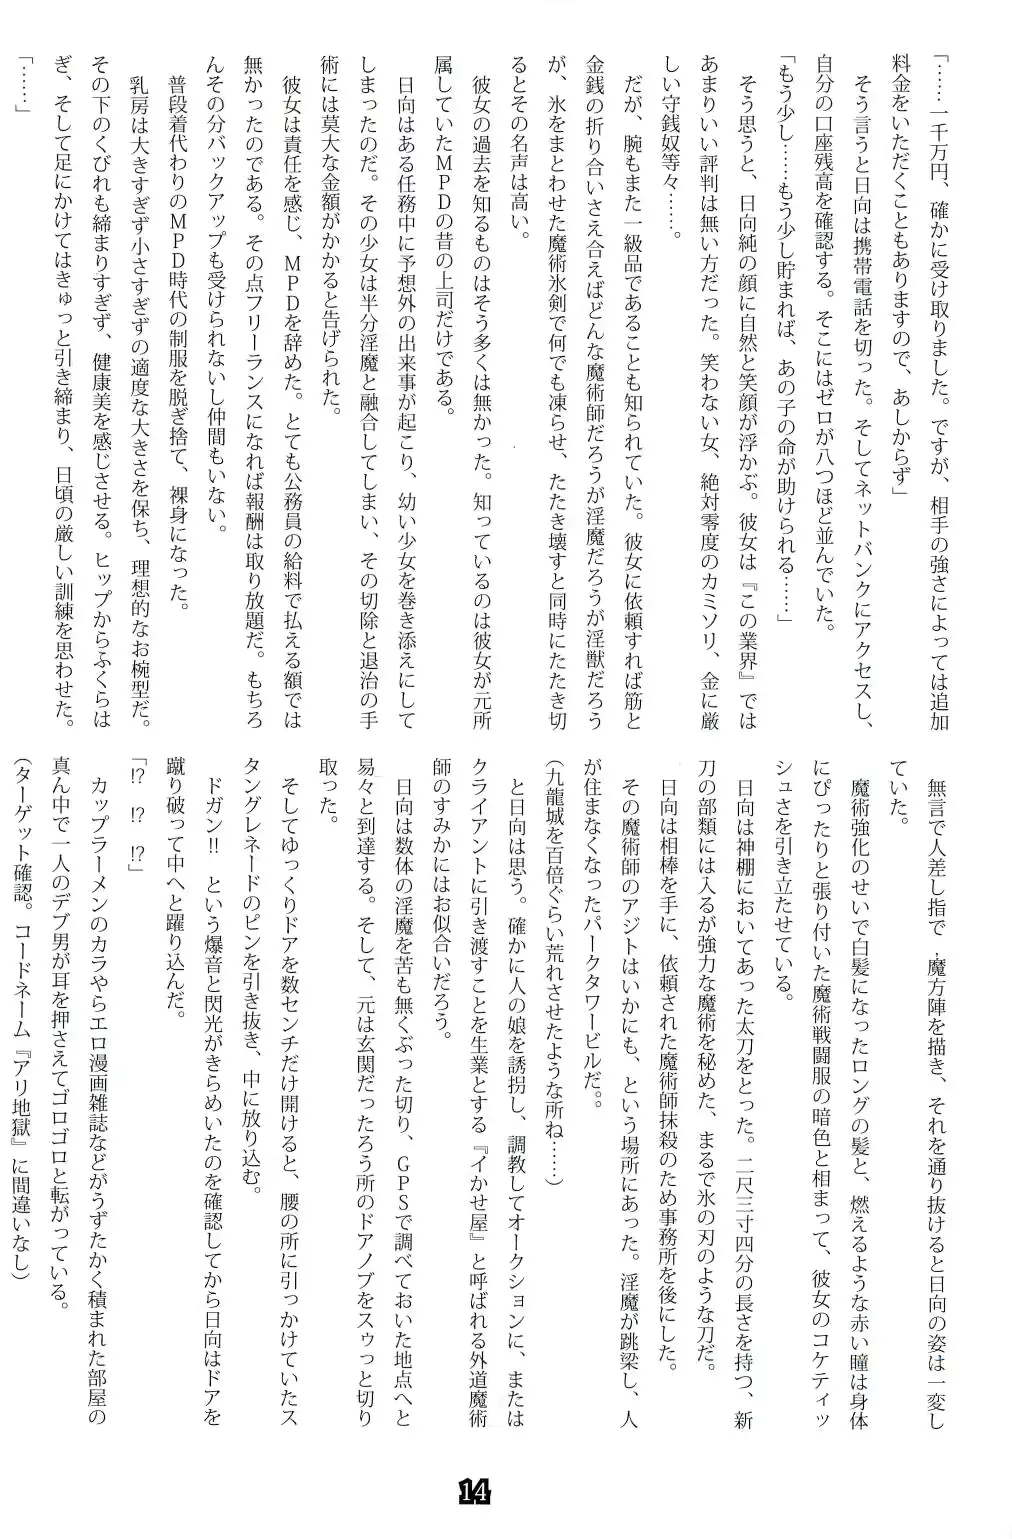 「……一千万円、確かに受け取りました。ですが、相手の強さによっては追加
料金をいただくこともありますので、あしからず」
そう言うと日向は携帯電話を切った。そしてネットバンクにアクセスし、
自分の口座残高を確認する。そこにはゼロが八つほど並んでいた。
「もう少し……もう少し貯まれば、あの子の命が助けられる……」
そう思うと、日向純の顔に自然と笑顔が浮かぶ。彼女は『この業界』では
あまりいい評判は無い方だった。笑わない女、絶対零度のカミソリ、金に厳
しい守銭奴等々……。
だが、腕もまた一級品であることも知られていた。彼女に依頼すれば筋と
金銭の折り合いさえ合えばどんな魔術師だろうが淫魔だろうが淫獣だろう
が、氷をまとわせた魔術氷剣で何でも凍らせ、たたき壊すと同時にたたき切
るとその名声は高い。
彼女の過去を知るものはそう多くは無かった。知っているのは彼女が元所
属していたＭＰＤの昔の上司だけである。
日向はある任務中に予想外の出来事が起こり、幼い少女を巻き添えにして
しまったのだ。その少女は半分淫魔と融合してしまい、その切除と退治の手
術には莫大な金額がかかると告げられた。
彼女は責任を感じ、ＭＰＤを辞めた。とても公務員の給料で払える額では
無かったのである。その点フリーランスになれば報酬は取り放題だ。もちろ
んその分バックアップも受けられないし仲間もいない。
普段着代わりのＭＰＤ時代の制服を脱ぎ捨て、裸身になった。
乳房は大きすぎず小さすぎずの適度な大きさを保ち、理想的なお椀型だ。
その下のくびれも締まりすぎず、健康美を感じさせる。ヒップからふくらは
ぎ、そして足にかけてはきゅっと引き締まり、日頃の厳しい訓練を思わせた。
「……」
無言で人差し指で、魔方陣を描き、それを通り抜けると日向の姿は一変し
ていた。
魔術強化のせいで白髪になったロングの髪と、燃えるような赤い瞳は身体
にぴったりと張り付いた魔術戦闘服の暗色と相まって、彼女のコケティッ
シュさを引き立たせている。
日向は神棚においてあった太刀をとった。二尺三寸四分の長さを持つ、新
刀の部類には入るが強力な魔術を秘めた、まるで氷の刃のような刀だ。
日向は相棒を手に、依頼された魔術師抹殺のため事務所を後にした。
その魔術師のアジトはいかにも、という場所にあった。淫魔が跳梁し、人
が住まなくなったパークタワービルだ。。
（九龍城を百倍ぐらい荒れさせたような所ね……）
と日向は思う。確かに人の娘を誘拐し、調教してオークションに、または
クライアントに引き渡すことを生業とする『イかせ屋』と呼ばれる外道魔術
師のすみかにはお似合いだろう。
日向は数体の淫魔を苦も無くぶった切り、ＧＰＳで調べておいた地点へと
易々と到達する。そして、元は玄関だったろう所のドアノブをスゥっと切り
取った。
そしてゆっくりドアを数センチだけ開けると、腰の所に引っかけていたス
タングレネードのピンを引き抜き、中に放り込む。
ドガン!!　という爆音と閃光がきらめいたのを確認してから日向はドアを
蹴り破って中へと躍り込んだ。
「!?　!?　!?」
カップラーメンのカラやらエロ漫画雑誌などがうずたかく積まれた部屋の
真ん中で一人のデブ男が耳を押さえてゴロゴロと転がっている。
（ターゲット確認。コードネーム『アリ地獄』に間違いなし）
14